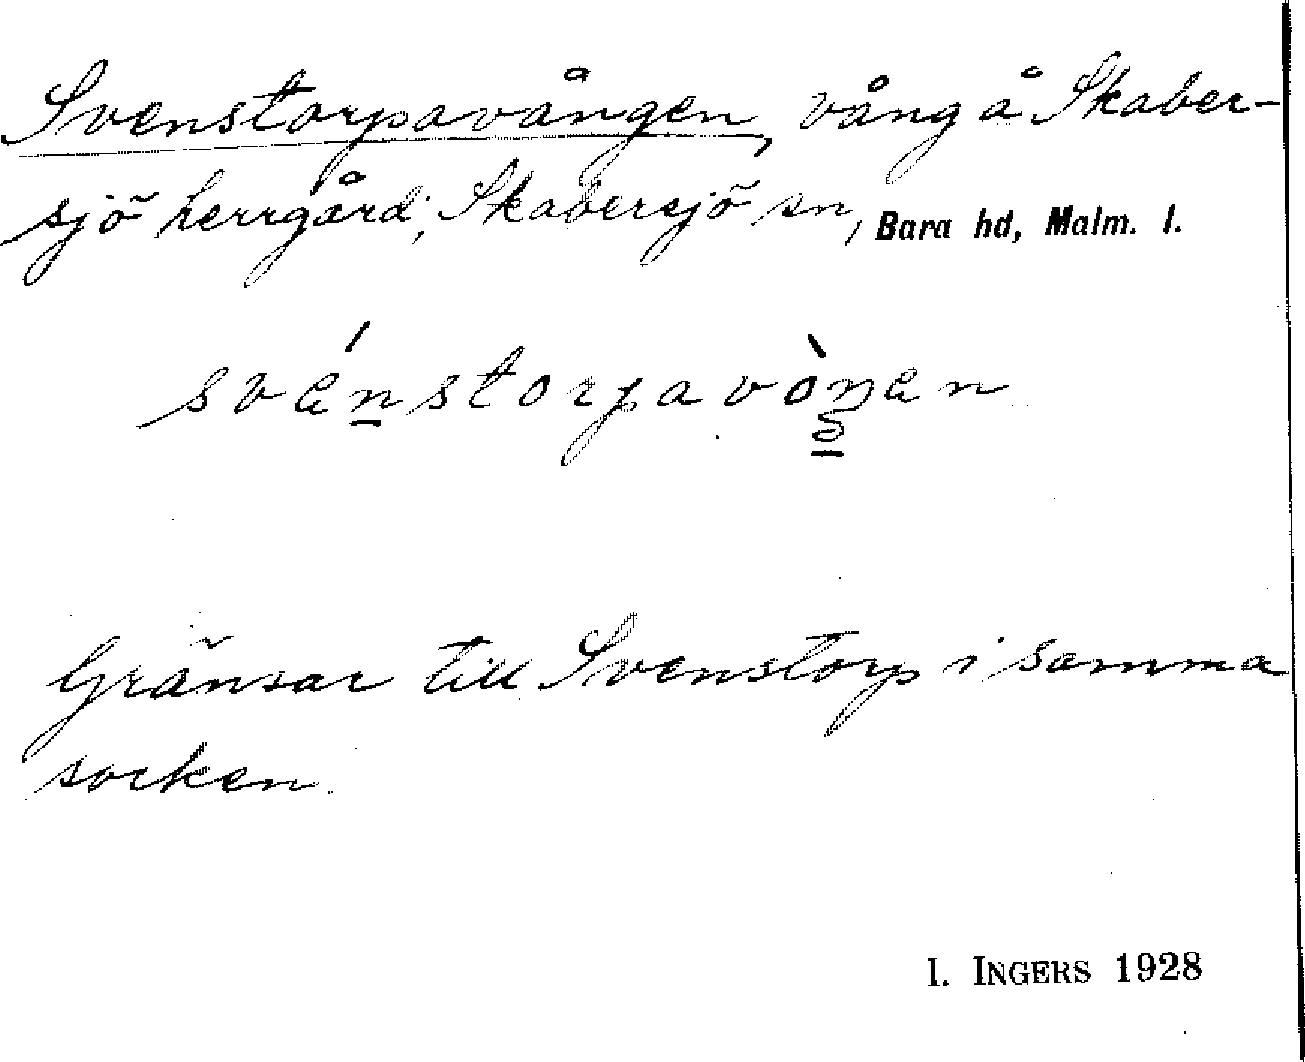 Svenstorpavången, vång å Skaber-
sjö herrgård, Skabersjö sn, Bara hd, Malm. l.
svénstorpavòŋen
Gränsar till Svenstorp i samma
socken.
I. INGERS 1928